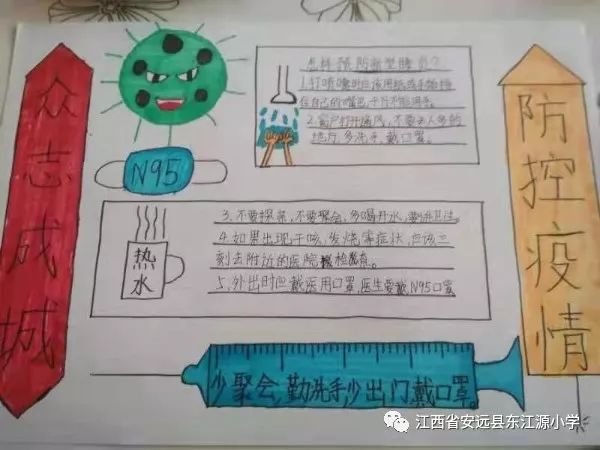 众志成城
防控疫情
怎样预防新型肺炎?
1.打喷嚏时应该用纸或手帕捂
在自己的嘴巴,千万不能用手。
2.窗户打开通风,不要去人多的
地方,多洗手,戴口罩。
N95
热水
3.不要探亲,不要聚会,多喝开水,勤
4.如果出现干咳,发烧等症状,应该立
刻去附近的医院检
5.外出时 戴医用口罩,医生要戴N95口罩
少聚会,勤洗手少出门戴口罩。
江西省安远县东江源小学